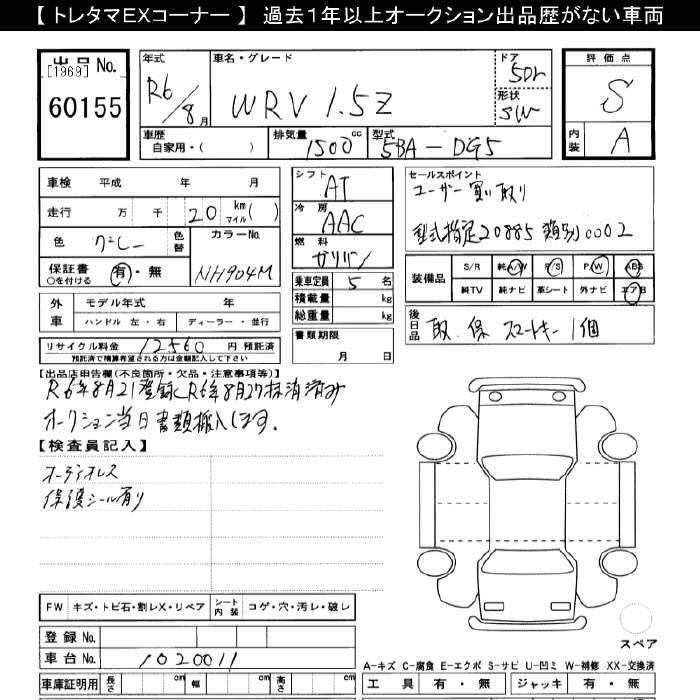 【 トレタマEXコーナー 】 過去1年以上オークション出品歴がない車両
出品 No.
[1969]
60155
年式
R6/8月
車名・グレード
WRV 1.5Z
ドア
5Dr
形状
SW
評価点
S
内装
A
車歴
自家用・( )
排気量
1500 cc
型式
5BA-DG5
車検 平成 年 月
走行 万 千 20 km マイル ( )
色 グレー 色替
カラーNo.
NH904M
保証書 有・無
○を付ける
外車
モデル年式 年
ハンドル 左・右 ディーラー・並行
リサイクル料金 12560 円 預託済
預託済で精算希望される方は金額記入して下さい
シフト
AT
冷房
AAC
燃料
ガソリン
乗車定員 5 名
積載量 kg
総重量 kg
書類期限
月 日
セールスポイント
ユーザー買い取り
型式指定20885 類別0002
装備品
S/R 純A/W P/S P/W ABS
純TV 純ナビ 革シート 外ナビ エアB
後日品
取.保 スマートキー1個
【出品店申告欄(不良箇所・欠品・注意事項等)】
R6年8月21登録 R6年8月27抹消済み
オークション当日書類搬入します.
【検査員記入】
オーディオレス
保護シール有り
FW キズ・トビ石・割レX・リペア シート内装 コゲ・穴・汚レ・破レ
登録 No.
車台 No. 1020011
車庫証明用 長さ cm 幅 cm 高さ cm
スペア
A-キズ C-腐食 E-エクボ S-サビ U-凹ミ W-補修 XX-交換済
工具 有・無 ジャッキ 有・無